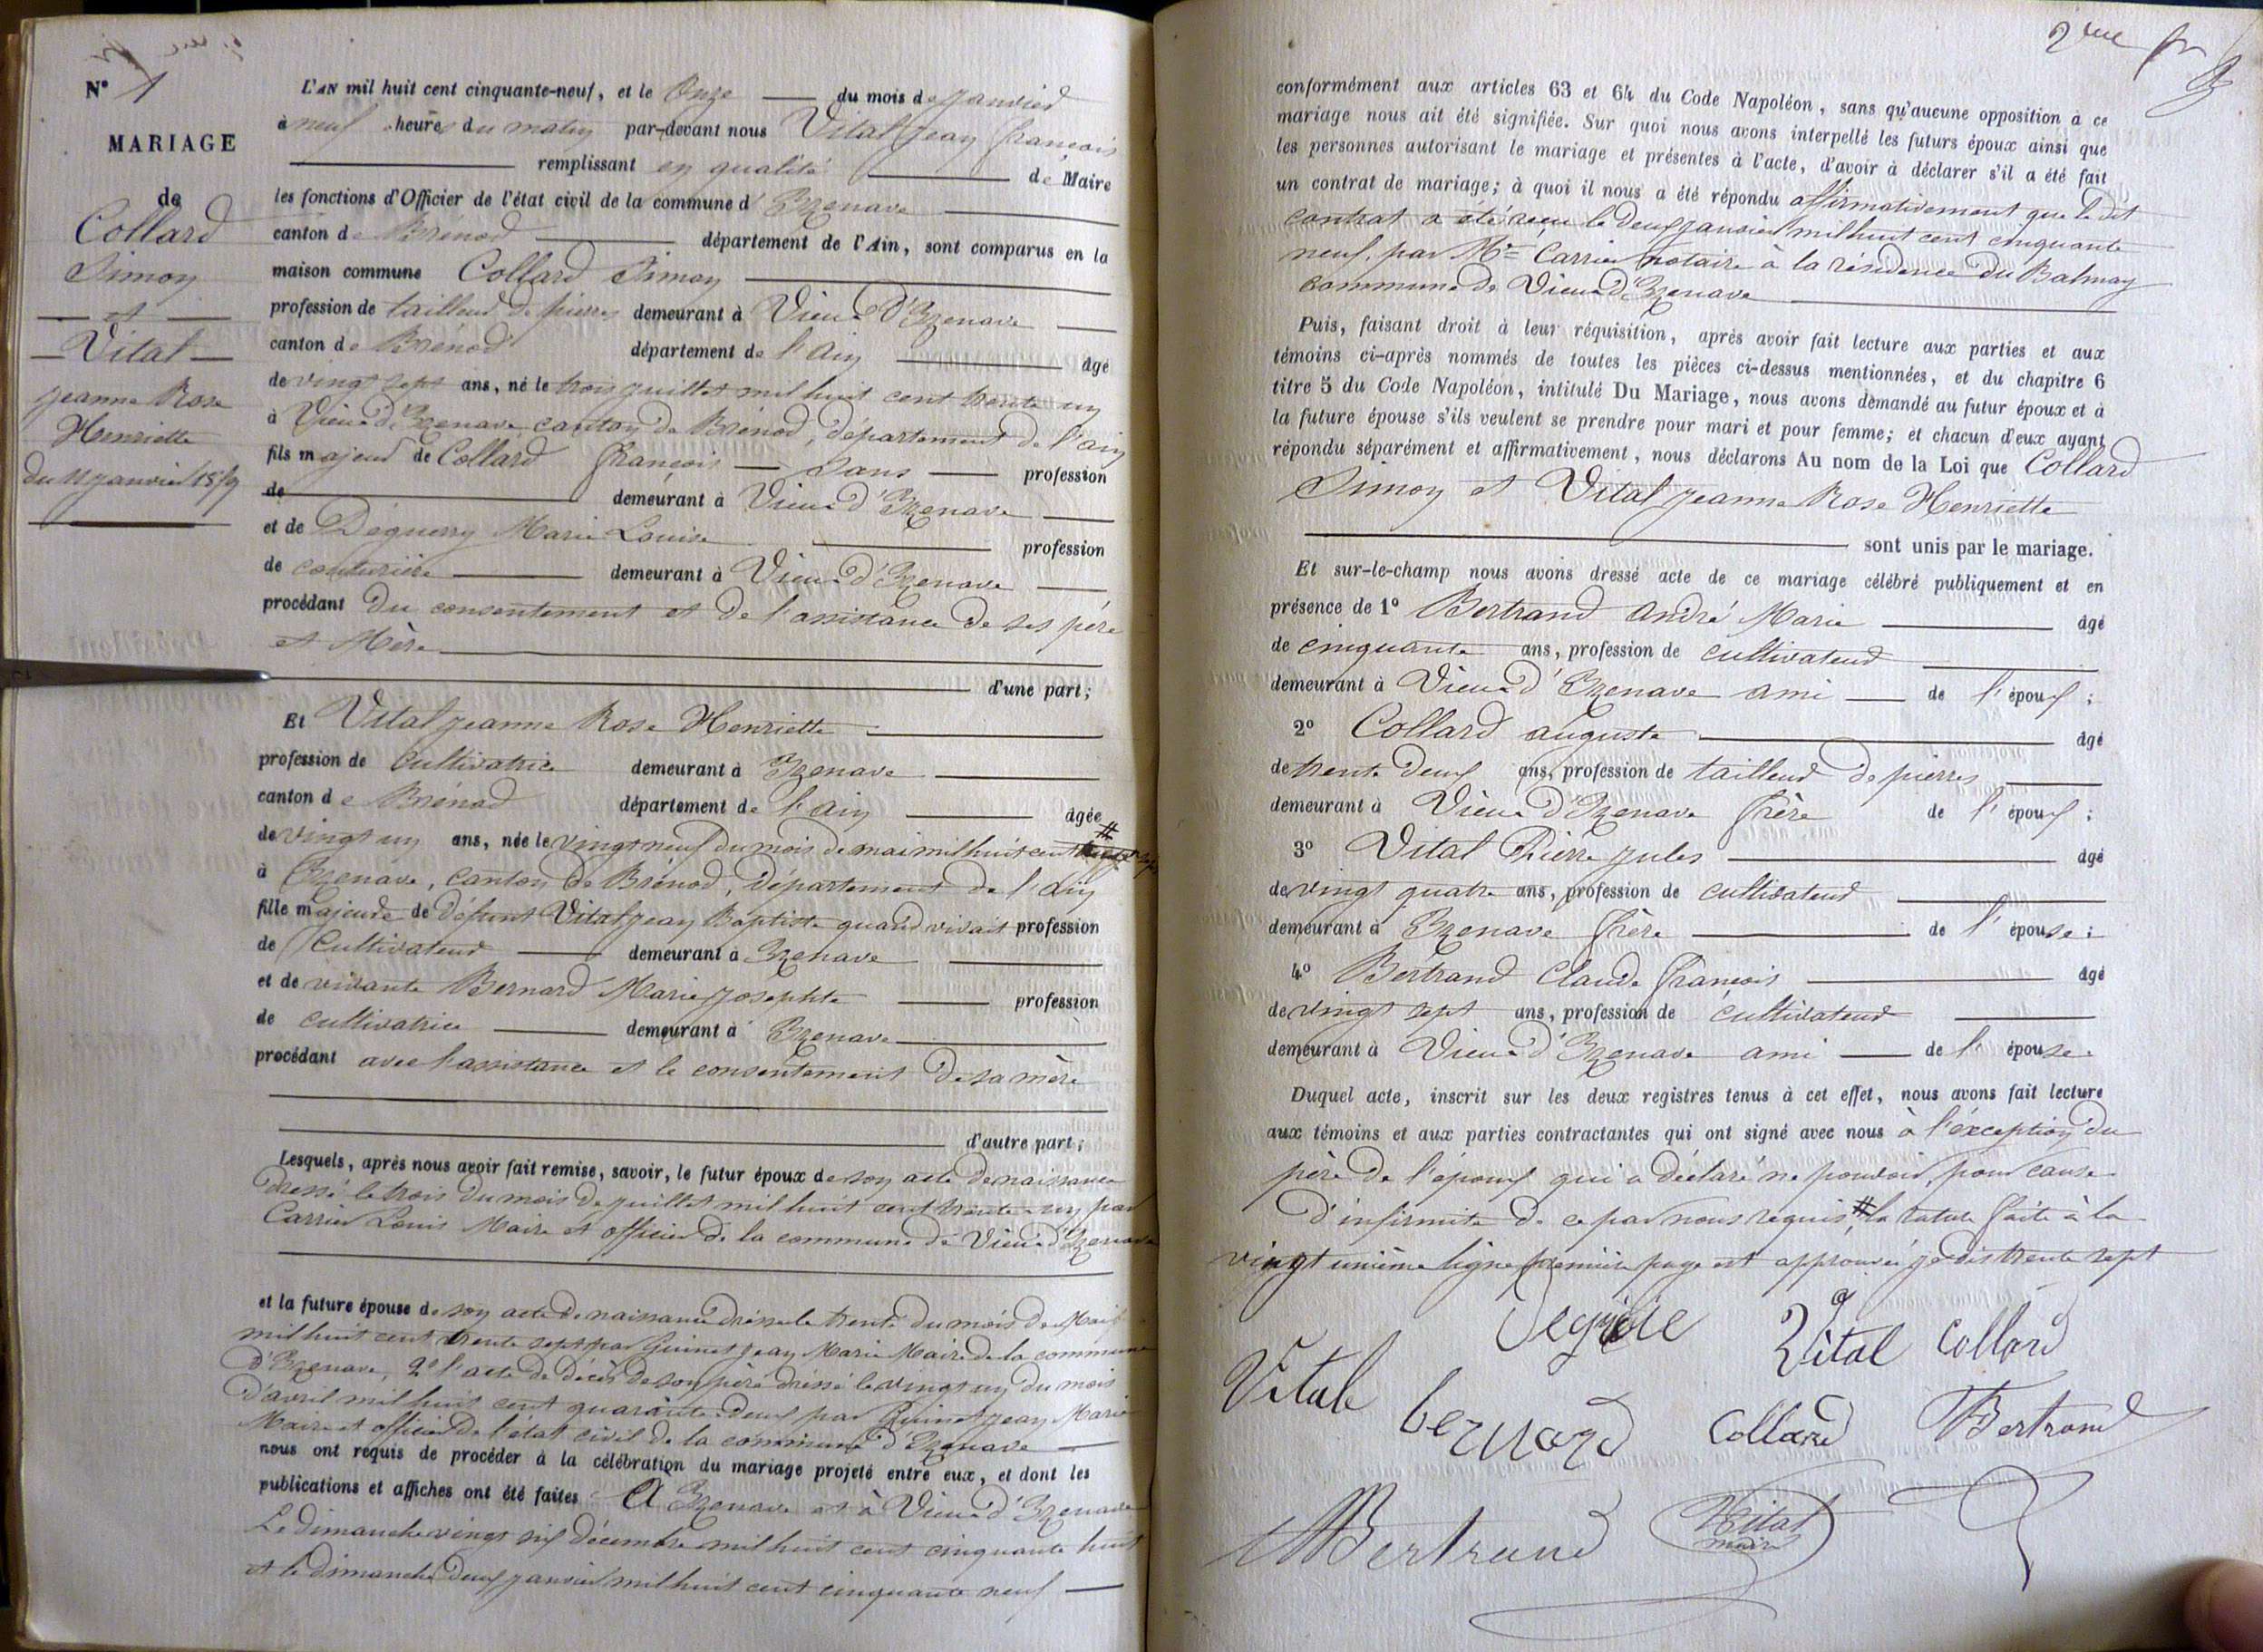 N° 1
MARIAGE
de
Collard
Simon
et
Vital
Jeanne Rose
Henriette
du 11 janvier 1859
L'AN mil huit cent cinquante-neuf, et le Onze du mois de janvier
à neuf heures du matin par-devant nous Vital Jean François
remplissant en qualité de Maire
les fonctions d'Officier de l'état civil de la commune d'Izenave
canton de Brénod département de l'Ain, sont comparus en la
maison commune Collard Simon
profession de tailleur de pierres demeurant à Vieu d'Izenave
canton de Brénod département de l'ain âgé
de vingt sept ans, né le trois juillet mil huit cent trente un
à Vieu d'Izenave canton de Brénod, département de l'ain
fils majeur de Collard François Sans profession
de demeurant à Vieu d'Izenave
et de Déguerry Marie Louise profession
de couturière demeurant à Vieu d'Izenave
procédant du consentement et de l'assistance de ses père
et Mère
d'une part;
Et Vital Jeanne Rose Henriette
profession de Cultivatrice demeurant à Izenave
canton de Brénod département de l'ain âgée
de vingt un ans, née le vingt neuf du mois de mai mil huit cent #
à Izenave, canton de Brénod, département de l'Ain
fille majeure de défunt Vital Jean Baptiste quand vivait profession
de Cultivateur demeurant à Izenave
et de vivante Bernard Marie Josephte profession
de cultivatrice demeurant à Izenave
procédant avec l'assistance et le consentement de sa mère
d'autre part;
Lesquels, après nous avoir fait remise, savoir, le futur époux de son acte de naissance
dressé le trois du mois de juillet mil huit cent trente un par
Carrier Louis Maire et officier de la commune de Vieu d'Izenave
et la future épouse de son acte de naissance dressé le trente du mois de Mai
mil huit cent trente sept par Guinet Jean Marie Maire de la commune
d'Izenave, 2° l'acte de décès de son père dressé le vingt un du mois
d'avril mil huit cent quarante deux par Guinet Jean Marie
Maire et officier de l'état civil de la commune d'Izenave
nous ont requis de procéder à la célébration du mariage projeté entre eux, et dont les
publications et affiches ont été faites A Izenave et à Vieu d'Izenave
Le dimanche vingt six décembre mil huit cent cinquante huit
et le dimanche deux janvier mil huit cent cinquante neuf
2eme
conformément aux articles 63 et 64 du Code Napoléon, sans qu'aucune opposition à ce
mariage nous ait été signifiée. Sur quoi nous avons interpellé les futurs époux ainsi que
les personnes autorisant le mariage et présentes à l'acte, d'avoir à déclarer s'il a été fait
un contrat de mariage; à quoi il nous a été répondu affirmativement que le dit
contrat a été reçu le deux janvier mil huit cent cinquante
neuf, par Me Carrier notaire à la résidence du Balmay
commune de Vieu d'Izenave
Puis, faisant droit à leur réquisition, après avoir fait lecture aux parties et aux
témoins ci-après nommés de toutes les pièces ci-dessus mentionnées, et du chapitre 6
titre 5 du Code Napoléon, intitulé Du Mariage, nous avons demandé au futur époux et à
la future épouse s'ils veulent se prendre pour mari et pour femme; et chacun d'eux ayant
répondu séparément et affirmativement, nous déclarons Au nom de la Loi que Collard
Simon et Vital Jeanne Rose Henriette
sont unis par le mariage.
Et sur-le-champ nous avons dressé acte de ce mariage célébré publiquement et en
présence de 1° Bertrand André Marie âgé
de cinquante ans, profession de cultivateur
demeurant à Vieu d'Izenave ami de l'époux;
2° Collard auguste âgé
de trente deux ans, profession de tailleur de pierres
demeurant à Vieu d'Izenave frère de l'époux;
3° Vital Pierre Jules âgé
de vingt quatre ans, profession de cultivateur
demeurant à Izenave frère de l'épouse;
4° Bertrand Claude François âgé
de vingt sept ans, profession de cultivateur
demeurant à Vieu d'Izenave ami de l'épouse.
Duquel acte, inscrit sur les deux registres tenus à cet effet, nous avons fait lecture
aux témoins et aux parties contractantes qui ont signé avec nous à l'exception du
père de l'époux qui a déclaré ne pouvoir, pour cause
d'infirmité de ce par nous requis, # la rature faite à la
vingt unième ligne première page est approuvée je dis trente sept
Vital Collard
Vitale bernard Collard Bertrand
Bertrand Vital
maire